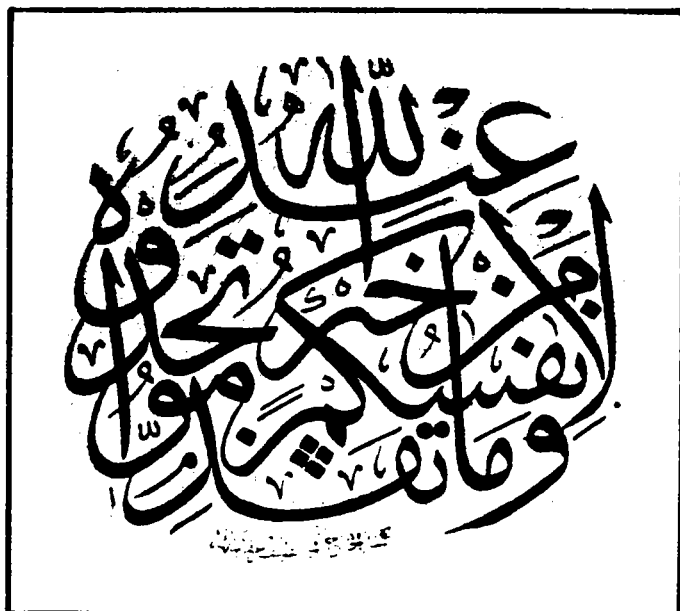 وَمَا تُقَدِّمُوا لِأَنْفُسِكُمْ مِنْ خَيْرٍ تَجِدُوهُ عِنْدَ اللّٰهِ